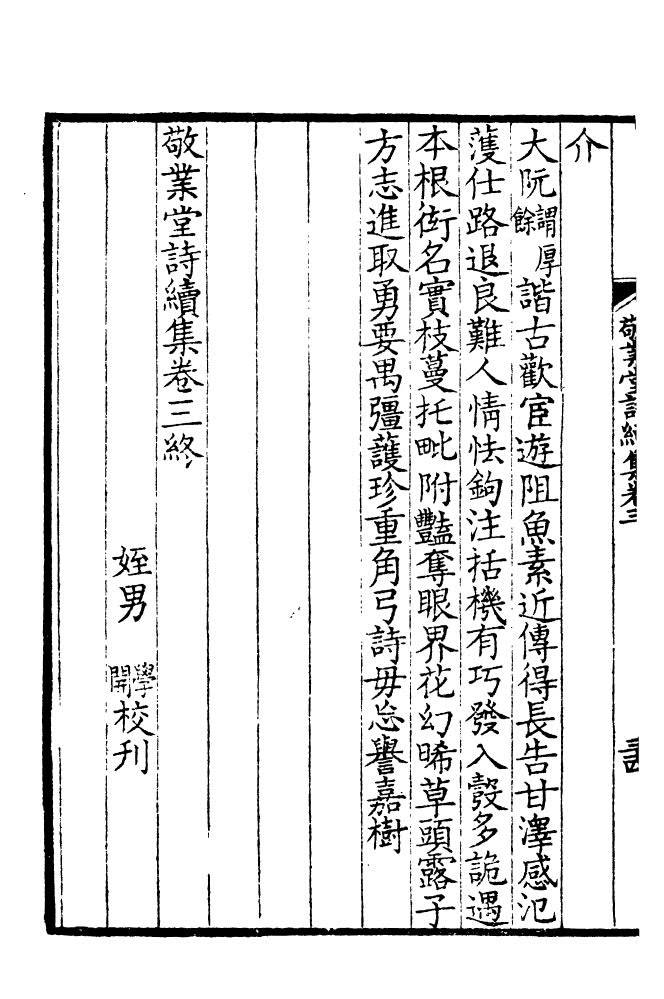 敬業堂詩續集卷三
介
大阮謂厚餘諧古歡宦遊阻魚素近傳得長告甘澤感氾
濩仕路退良難人情怯鉤注括機有巧發入彀多詭遇
本根衒名實枝蔓托毗附豔奪眼界花幻晞草頭露子
方志進取勇要畏彊護珍重角弓詩毋忘譽嘉樹
敬業堂詩續集卷三終
姪男 學開校刊